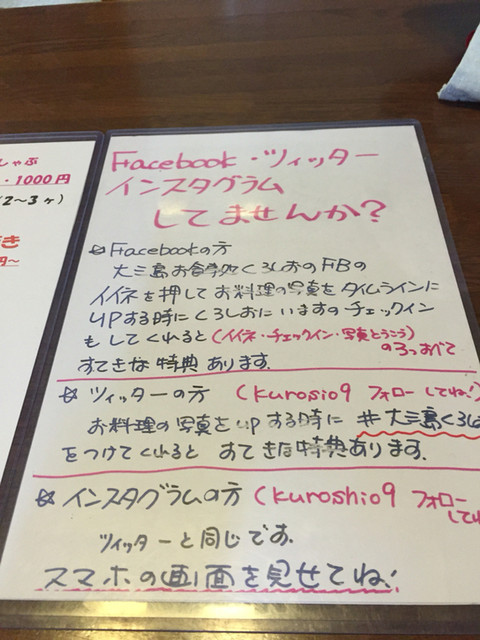 しゃぶ
・1000円
(2〜3ヶ)
き
円〜
Facebook・ツィッター
インスタグラム
してませんか?
☆ Facebookの方
大三島お食事処くろしおのFBの
イイネを押してお料理の写真をタイムラインに
UPする時にくろしおにいますのチェックイン
もしてくれると(イイネ・チェックイン・写真とうこう)
の3つすべて
すてきな特典あります.
☆ ツィッターの方 (kurosio9 フォローしてね!)
お料理の写真をupする時に #大三島くろし
をつけてくれると すてきな特典あります.
☆ インスタグラムの方 (kuroshio9 フォロー
してね
ツィッターと同じです.
スマホの画面を見せてね!